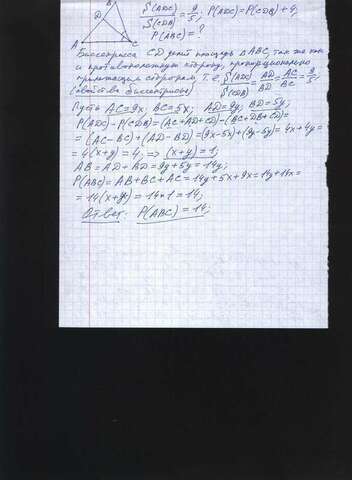 B
S(ADC)/S(CDB) = 9/5; P(ADC) = P(CDB) + 4;
D
P(ABC) = ?
A C
Биссектриса CD делит площадь △ABC, так же как
и противоположную сторону, пропорционально
прилежащим сторонам, т.е. S(ADC)/S(CDB) = AD/BD = AC/BC = 9/5.
(свойство биссектрисы)
Пусть AC=9x, BC=5x; AD=9y, BD=5y;
P(ADC)-P(CDB) = (AC+AD+CD)-(BC+DB+CD) =
= (AC-BC)+(AD-BD) = (9x-5x)+(9y-5y) = 4x+4y =
= 4(x+y) = 4, => (x+y) = 1.
AB = AD+BD = 9y+5y = 14y;
P(ABC) = AB+BC+AC = 14y+5x+9x = 14y+14x =
= 14(x+y) = 14*1 = 14;
Ответ: P(ABC) = 14;